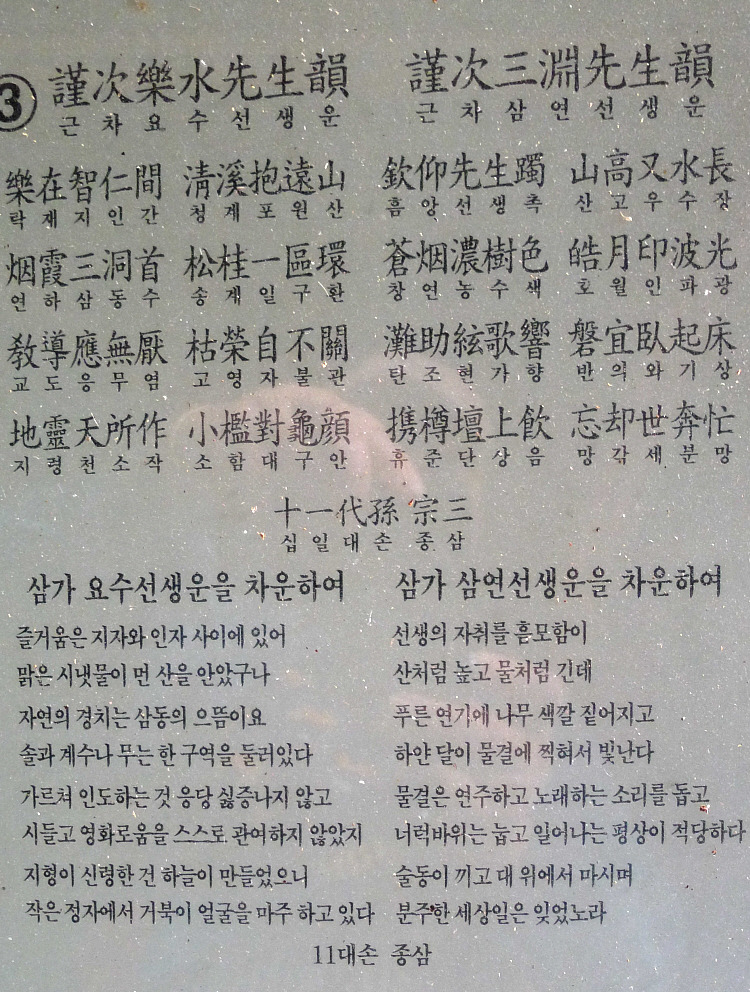 ③ 謹次樂水先生韻
근차요수선생운
樂在智仁間 淸溪抱遠山
락재지인간 청계포원산
烟霞三洞首 松桂一區環
연하삼동수 송계일구환
敎導應無厭 枯榮自不關
교도응무염 고영자불관
地靈天所作 小檻對龜顔
지령천소작 소함대구안
謹次三淵先生韻
근차삼연선생운
欽仰先生躅 山高又水長
흠앙선생촉 산고우수장
蒼烟濃樹色 皓月印波光
창연농수색 호월인파광
灘助絃歌響 磐宜臥起床
탄조현가향 반의와기상
携樽壇上飮 忘却世奔忙
휴준단상음 망각세분망
十一代孫 宗三
십일대손 종삼
삼가 요수선생운을 차운하여
즐거움은 지자와 인자 사이에 있어
맑은 시냇물이 먼 산을 안았구나
자연의 경치는 삼동의 으뜸이요
솔과 계수나 무는 한 구역을 둘러있다
가르쳐 인도하는 것 응당 싫증나지 않고
시들고 영화로움을 스스로 관여하지 않았지
지형이 신령한 건 하늘이 만들었으니
작은 정자에서 거북이 얼굴을 마주 하고 있다
삼가 삼연선생운을 차운하여
선생의 자취를 흠모함이
산처럼 높고 물처럼 긴데
푸른 연기에 나무 색깔 짙어지고
하얀 달이 물결에 찍혀서 빛난다
물결은 연주하고 노래하는 소리를 돕고
너럭바위는 눕고 일어나는 평상이 적당하다
술동이 끼고 대 위에서 마시며
분주한 세상일은 잊었노라
11대손 종삼